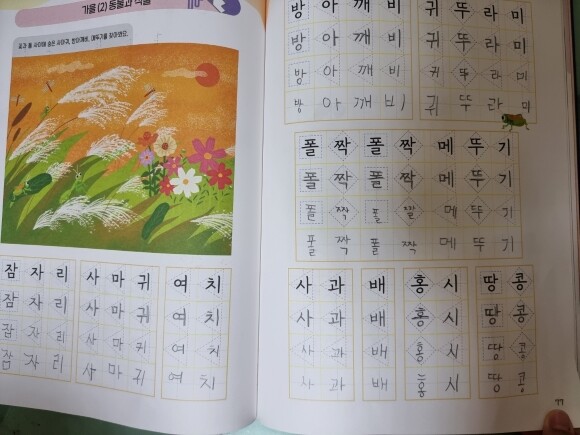 가을 (2) 동물과 식물
꽃과 풀 사이에 숨은 사마귀, 방아깨비, 메뚜기를 찾아봐요.
잠자리 사마귀 여치
잠자리 사마귀 여치
잠자리 사마귀 여치
잠자리 사마귀 여치
방아깨비 귀뚜라미
방아깨비 귀뚜라미
방아깨비 귀뚜라미
방아깨비 귀뚜라미
폴짝폴짝 메뚜기
폴짝폴짝 메뚜기
폴짝폴짝 메뚜기
폴짝폴짝 메뚜기
사과 배 홍시 땅콩
사과 배 홍시 땅콩
사과 배 홍시 땅콩
사과 배 홍시 땅콩
77